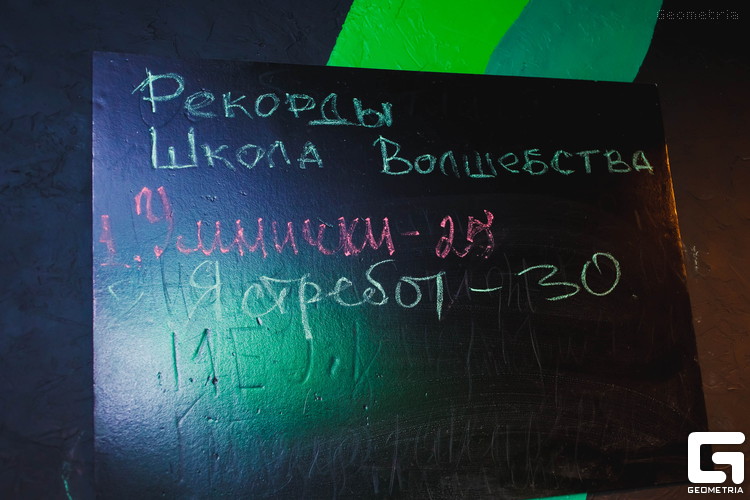 Geometria
Рекорды
Школа Волшебства
1. Умнички - 28
Ястребот - 30
GEOMETRIA